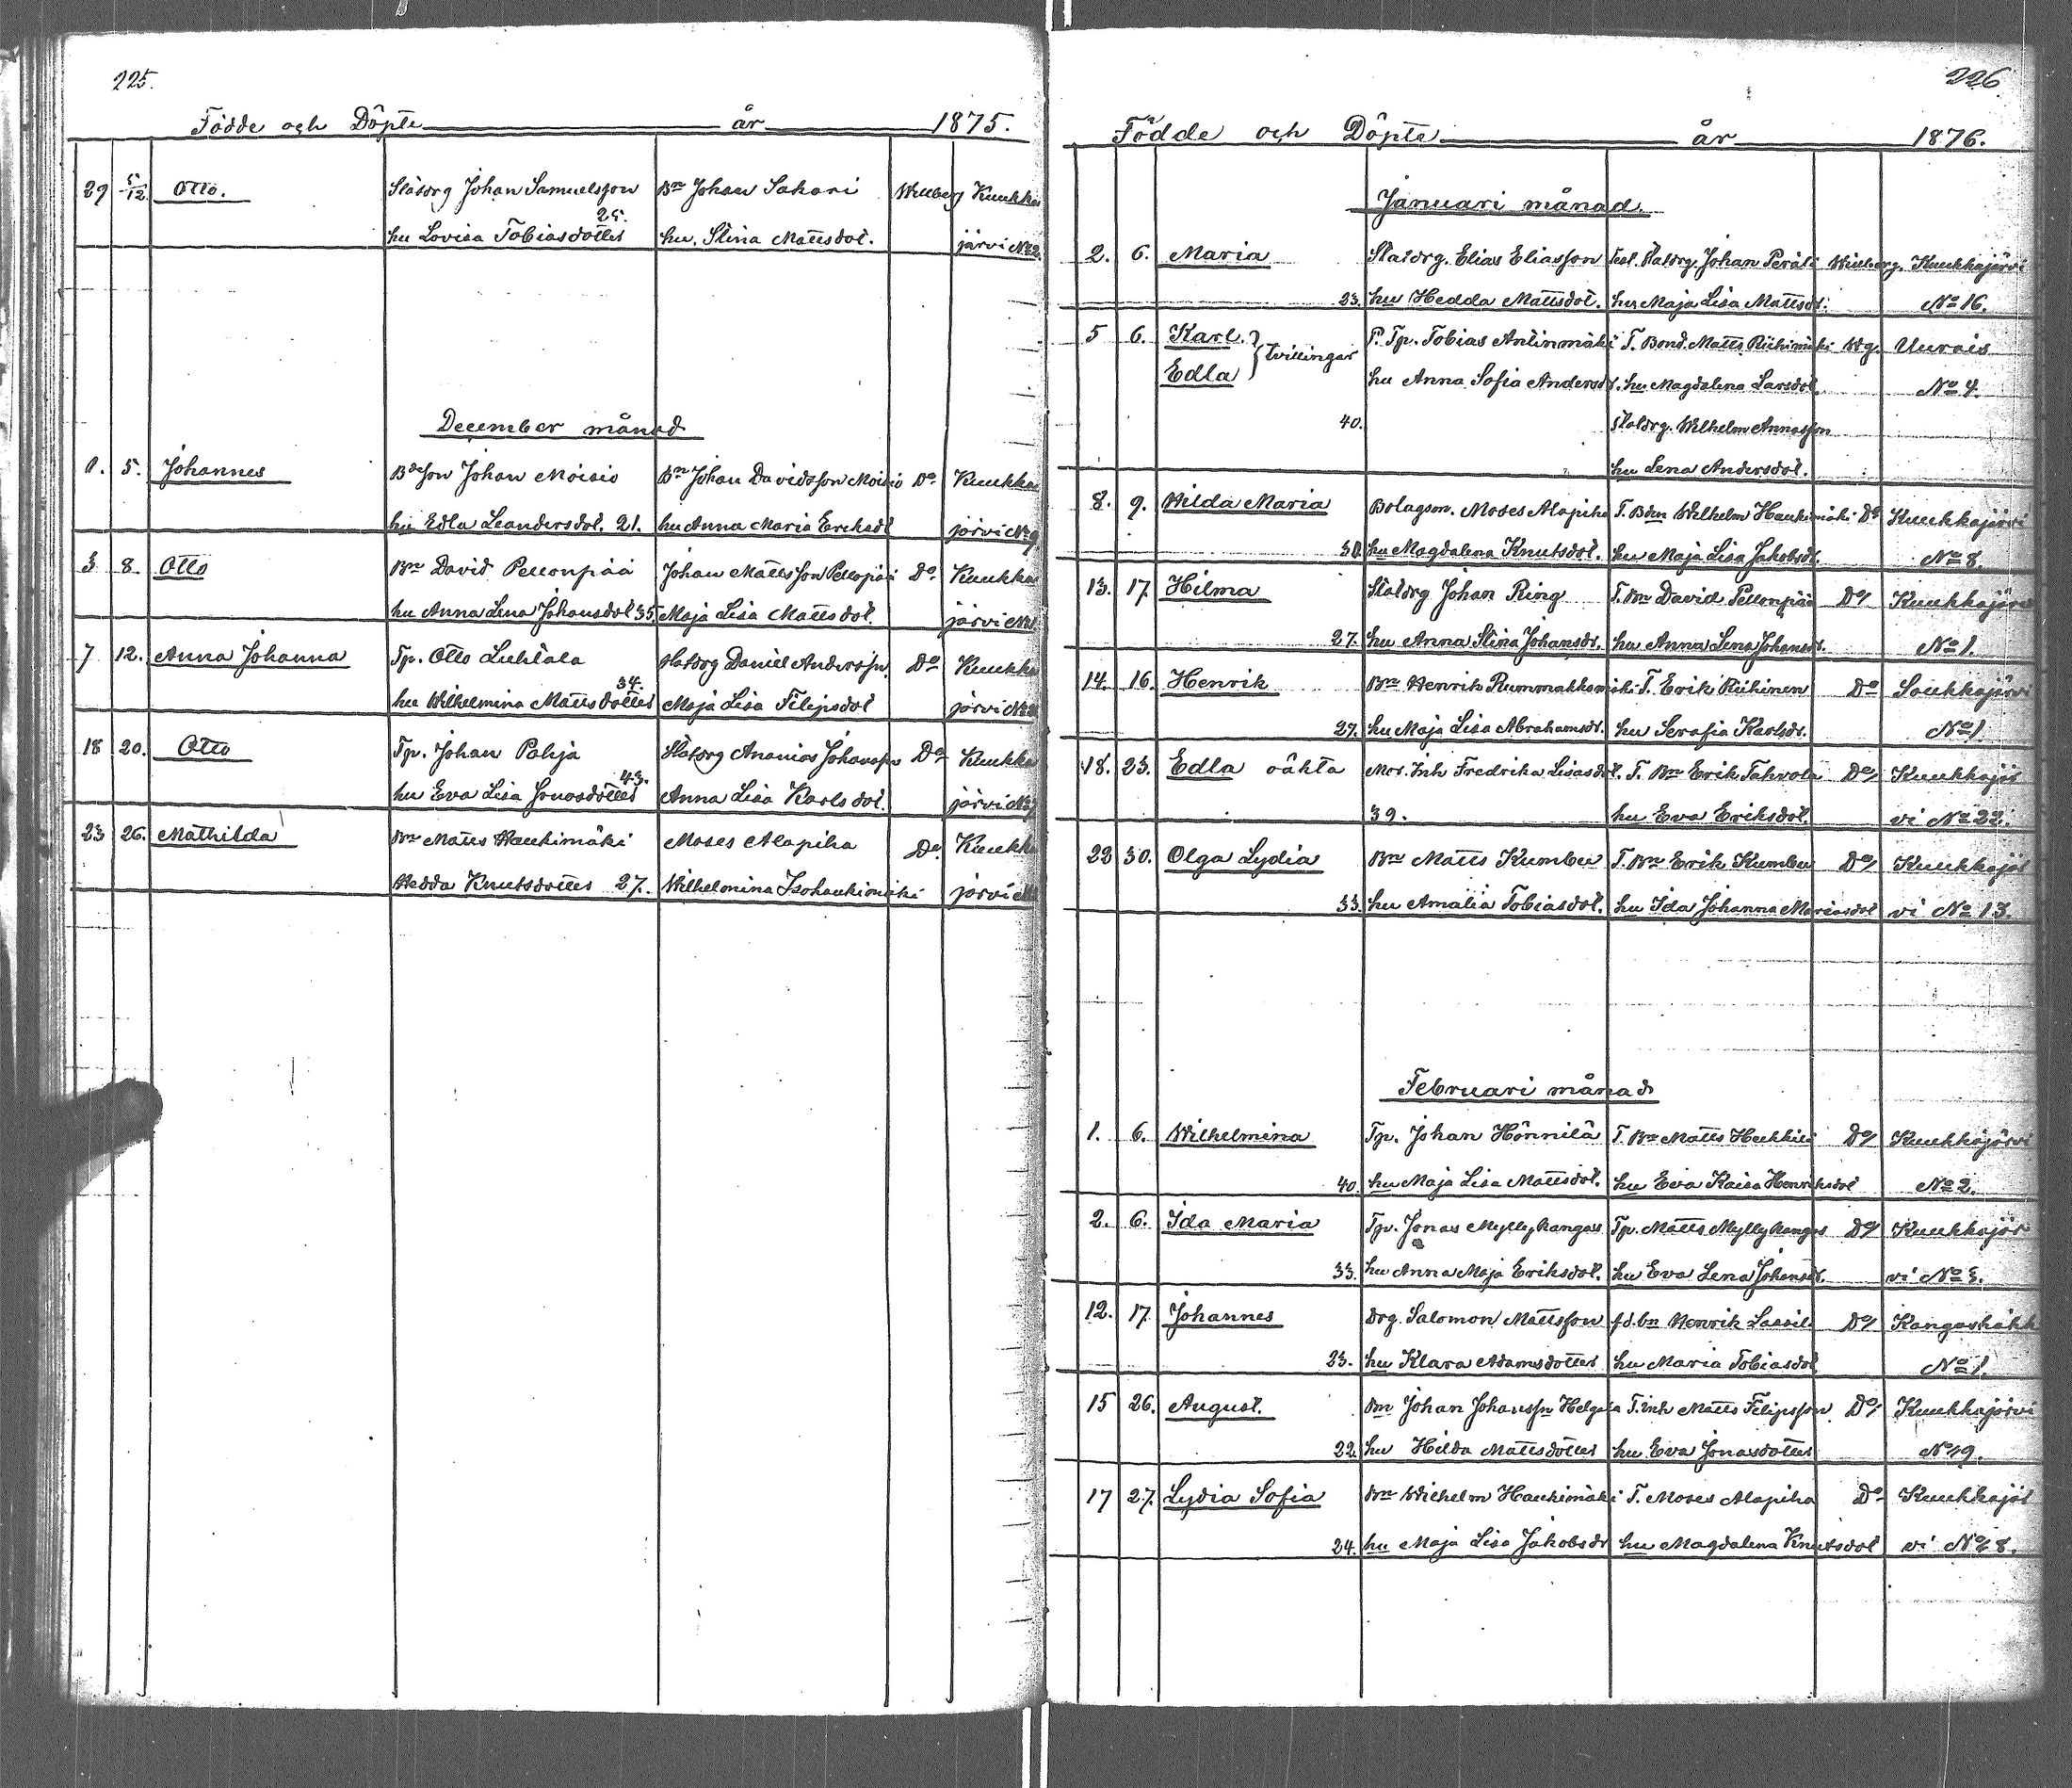 225.
Födde och Döpte år 1875.
29 5/12. Otto. Slätdrg Johan Samuelsson Bn Johan Sakari Willberg Kuukka
25.
hu Lovisa Tobiasdotter hu. Stina Mattsdot. järvi No 2
December månad
1. 5. Johannes Bdeson Johan Moisio Bn Johan Davidsson Moisio Do Kuukka
hu Edla Leandersdot. 21. hu Anna Maria Eriksdt järvi No 9
3 8. Otto Bn David Pellonpää Johan Mattsson Pellopää Do Kuukka
hu Anna Lena Johansdot 35. Maja Lisa Mattsdot. järvi No
7 12. Anna Johanna Tp. Otto Luhtala Slatdrg Daniel Anderssn. Do Kuukka
34.
hu Wilhelmina Mattsdotter Maja Lisa Filipsdot järvi No
18 20. Otto Tp. Johan Pohja Slatdrg Ananias Johanssn Do Kuukka
43.
hu Eva Lisa Jonasdotter Anna Lisa Karlsdot. järvi No
23 26. Mathilda Bn Matts Haukimäki Moses Alapiha Do. Kuukka
Hedda Knutsdotter 27. Wilhelmina Isohaukimäki järvi
226
Födde och Döpte år 1876.
Januari månad.
2. 6. Maria Slatdrg. Elias Eliasson Test. Slatdrg. Johan Perälä Willberg. Kuukkajärvi
23. hu Hedda Mattsdot. hu Maja Lisa Mattsdt. No 16.
5 6. Karl. } tvillingar P. Tp. Tobias Antinmäki T. Bond. Matts Riihimäki Wg. Uurais
Edla hu Anna Sofia Andersdt. hu Magdalena Larsdot. No 4.
40. Slatdrg. Wilhelm Annasson
hu Lena Andersdot.
8. 9. Hilda Maria Bolagsm. Moses Alapiha T. Bdn Wilhelm Haukimäki Do Kuukkajärvi
30. hu Magdalena Knutsdot. hu Maja Lisa Jakobsdt. No 8.
13. 17. Hilma Slatdrg Johan Ring T. Bn David Pellonpää Do Kuukkajärvi
27. hu Anna Stina Johansdt. hu Anna Lena Johansdt. No 1.
14. 16. Henrik Bn Henrik Rummukkamäki T. Erik Riihinen Do Soukkajärvi
27. hu Maja Lisa Abrahamsdt. hu Serafia Karlsdt. No 1
18. 23. Edla oäkta Mor. Inh Fredrika Lisasdot. T. Bn Erik Tahvola Do Kuukkajär
39. hu Eva Eriksdot. vi No 22.
22 30. Olga Lydia Bn Matts Kumbu T. Bn Erik Kumbu Do Kuukkajär
33. hu Amalia Tobiasdot. hu Ida Johanna Mariasdot vi No 13.
Februari månad
1. 6. Wilhelmina Tp. Johan Hönnilä T. Bn Matts Heikkilä Do Kuukkajärvi
40. hu Maja Lisa Mattsdot. hu Eva Kaisa Henriksdot No 2.
2. 6. Ida Maria Tp. Jonas Myllykangas Tp. Matts Myllykangas Do Kuukkajär
33. hu Anna Maja Eriksdot. hu Eva Lena Johansdt. vi No 3.
12. 17. Johannes Drg. Salomon Mattsson f.d. bn Henrik Lassila Do Kangaskäkk
23. hu Klara Adamsdotter hu Maria Tobiasdot No 1.
15 26. August. Bn Johan Johanssn Helgola T. inh Matts Filipsson Do Kuukkajärvi
22. hu Hilda Mattsdotter hu Eva Jonasdotter No 19.
17 27. Lydia Sofia Bn Wilhelm Haukimäki T. Moses Alapiha Do Kuukkajär
24. hu Maja Lisa Jakobsdt hu Magdalena Knutsdot vi No 8.